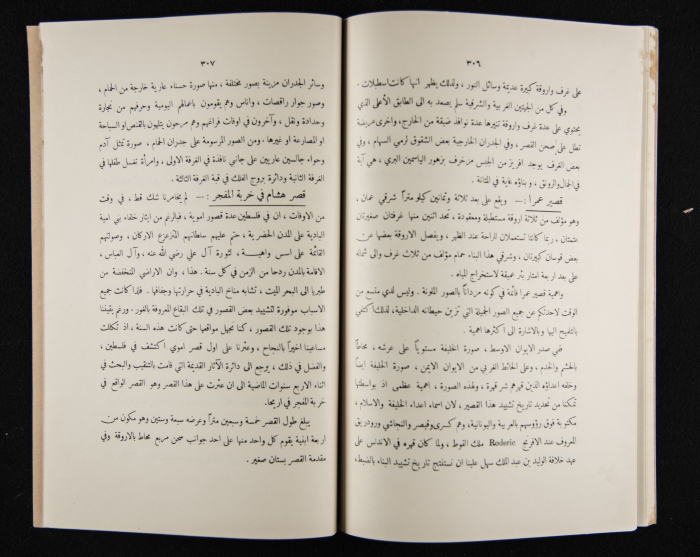 ٣٠٦
على غرف واروقة كبيرة عديمة وسائل النور ، ولذلك يظهر انها كانت اسطبلات .
وفي كل من الجهتين الغربية والشرقية سلم يصعد به الى الطابق الأعلى الذي
يحتوي على عدة غرف واروقة تنيرها عدة نوافذ ضيقة من الخارج، واخرى عريضة
تطل على صحن القصر ، وفي الجدران الخارجية بعض الشقوق لرمي السهام ، وفي
بعض الغرف يوجد افريز من الجبس مزخرف بزهور الياسمين البري ، هي آية
في الجمال والرونق ، وبناؤه غاية في المتانة .
قصير عمرا : — ويقع على بعد ثلاثة وثمانين كيلو متراً شرقي عمان ،
وهو مؤلف من ثلاثة اروقة مستطيلة ومعقودة ، تحد اثنين منها غرفتان صغيرتان
، ربما كانتا تستعملان للراحة عند الظهر ، ويفصل الاروقة بعضها عن
بعض قوسان كبيرتان ، وشرقي هذا البناء حمام مؤلف من ثلاث غرف والى شماله
على بعد اربعة امتار بئر عميقة لاستخراج المياه .
واهمية قصير عمرا قائمة في كونه مزداناً بالصور الملونة . وليس لدي متسع من
الوقت لاحدثكم عن جميع الصور الجميلة التي تزين حيطانه الداخلية، لذلك اكتفي
بالتلميح اليها وبالاشارة الى اكثرها اهمية .
ففي صدر الايوان الاوسط ، صورة الخليفة مستوياً على عرشه ، محاطاً
بالحشم والخدم ، وعلى الحائط الغربي من الايوان الايمن ، صورة الخليفة ايضاً
وخلفه اعداؤه الذين قهرهم شر قهرة ، ولهذه الصورة ، اهمية عظمى اذ بواسطتها
تمكنا من تحديد تاريخ تشييد هذا القصير ، لان اسماء اعداء الخليفة والاسلام ،
مكتوبة فوق رؤوسهم بالعربية واليونانية، وهم كسرى وقيصر والنجاشي ورودريق
المعروف عند الافرنج Roderic ملك القوط ، ولما كان قهره في الاندلس على
عهد خلافة الوليد بن عبد الملك سهل علينا ان نستنتج تاريخ تشييد البناء بالضبط،
٣٠٧
وسائر الجدران مزينة بصور مختلفة ، منها صورة حسناء عارية خارجة من الحمام ،
وصور جوار راقصات ، واناس وهم يقومون باعمالهم اليومية وحرفهم من نجارة
وحدادة ونقل ، وآخرون في اوقات فراغهم وهم مرحون يتلهون بالقنص او السباحة
او المصارعة او غيرها . ومن الصور المرسومة على جدران الحمام ، صورة تمثل آدم
وحواء جالسين عاريين على جانبي نافذة في الغرفة الاولى ، وامرأة تغسل طفلها في
الغرفة الثانية ودائرة بروج الفلك في قبة الغرفة الثالثة .
قصر هشام في خربة المفجر : — لم يخامرنا شك قط ، في وقت
من الاوقات ، ان في فلسطين عدة قصور اموية ، فبالرغم من ايثار خلفاء بني امية
البادية على المدن الحضرية ، حتم عليهم سلطانهم المتزعزع الاركان ، وصولتهم
القائمة على اسس واهية ، لثورة آل علي رضي الله عنه ، وآل العباس ،
الاقامة بالمدن ردحا من الزمن في كل سنة . هذا ، وان الاراضي المنخفضة من
طبريا الى البحر الميت ، تشابه مناخ البادية في حرارتها وجفافها . فلذا كانت جميع
الاسباب موفورة لتشييد بعض القصور في تلك البقاع المعروفة بالغور . ورغم يقيننا
هذا بوجود تلك القصور ، كنا نجهل مواقعها حتى كانت هذه السنة ، اذ تكللت
مساعينا اخيراً بالنجاح ، وعثرنا على اول قصر اموي اكتشف في فلسطين ،
والفضل في ذلك ، يرجع الى دائرة الآثار القديمة التي قامت بالتنقيب والبحث في
اثناء الاربع سنوات الماضية الى ان عثرت على هذا القصر وهو القصر الواقع في
خربة المفجر في اريحا .
يبلغ طول القصر خمسة وسبعين متراً وعرضه سبعة وستين وهو مكون من
اربعة ابنية يقوم كل واحد منها على احد جوانب صحن مربع محاط بالاروقة وفي
مقدمة القصر بستان صغير .